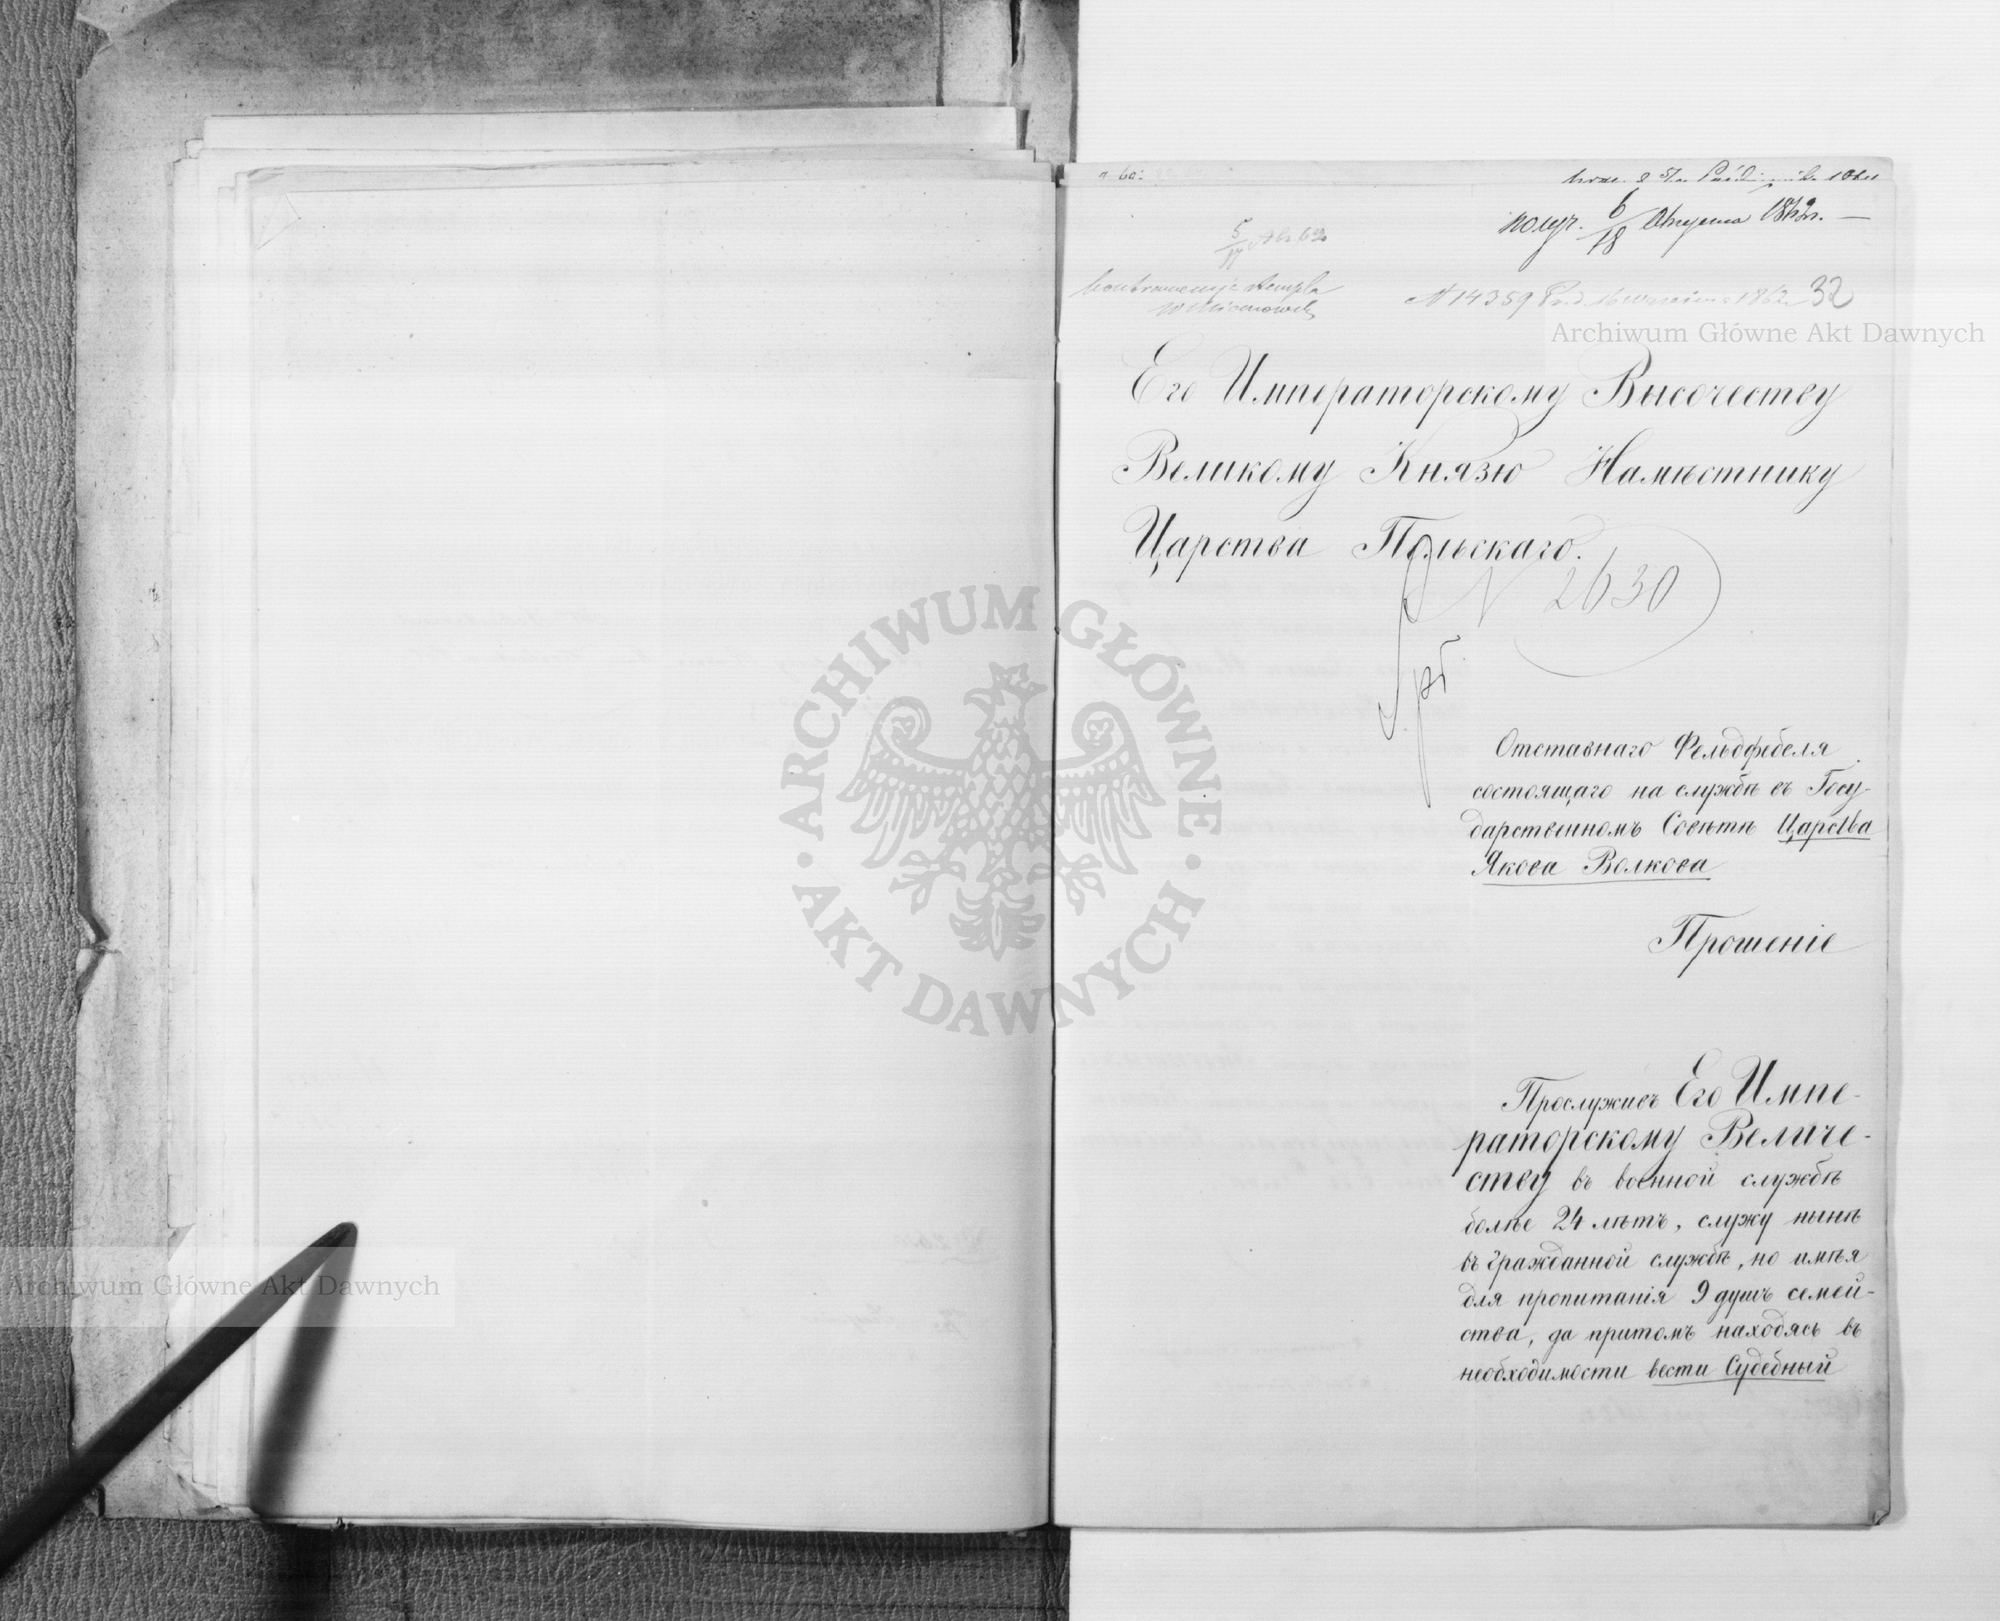 получ. 6/18 Августа 1862 г.
5/17
N 14359 1862 32
Archiwum Główne Akt Dawnych
Его Императорскому Высочеству
Великому Князю Намѣстнику
Царства Польскаго.
N 2630
Отставнаго Фельдфебеля
состоящаго на службѣ въ Госу-
дарственномъ Совѣтѣ Царства
Якова Волкова
Прошеніе
Прослуживъ Его Импе-
раторскому Величе-
ству въ военной службѣ
болѣе 24 лѣтъ, служу нынѣ
въ гражданной службѣ, но имѣя
для пропитанія 9 душъ семей-
ства, да притомъ находясь въ
необходимости вести Судебный
ARCHIWUM GŁÓWNE
· AKT DAWNYCH ·
Archiwum Główne Akt Dawnych